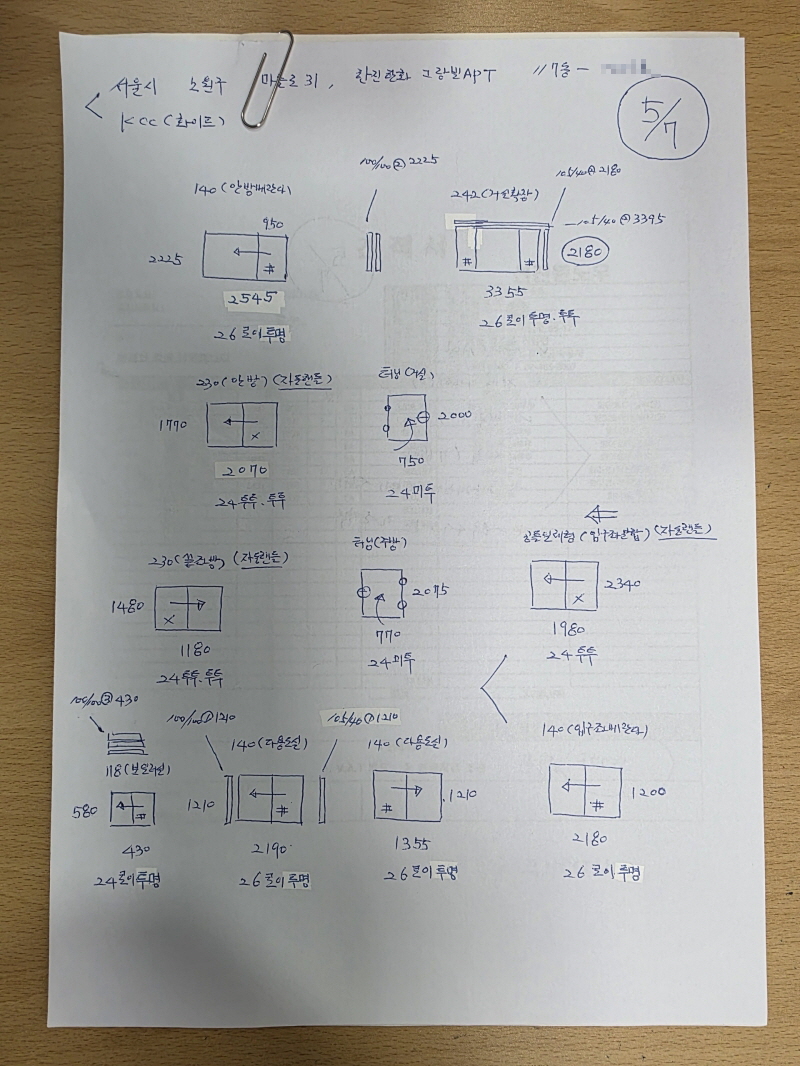 서울시 노원구 마들로 31, 한진한화 그랑빌APT 117동 -
KCC (화이트)
5/7
100/100 ② 2225
105/40 ② 2180
140 (안방베란다)
242 (거실확장)
105/40 ② 3395
950
2225
#
2180
# #
2545
3355
26 로이투명
26 로이투명.투투
230 (안방) (자동핸들)
터닝 (거실)
1770
X
2000
2070
750
24 투투.투투
24 미투
공틀일체형 (입구좌분합) (자동핸들)
230 ( ) (자동핸들)
터닝 (주방)
1480
X
2075
X
2340
1180
770
1980
24 투투.투투
24 미투
24 투투
100/100 ③ 430
100/100 ① 1210
105/40 ① 1210
118 (보일러실)
140 (다용도실)
140 (다용도실)
140 (입구좌베란다)
580
#
1210
#
#
1210
#
1200
430
2190
1355
2180
24 로이투명
26 로이투명
26 로이투명
26 로이투명